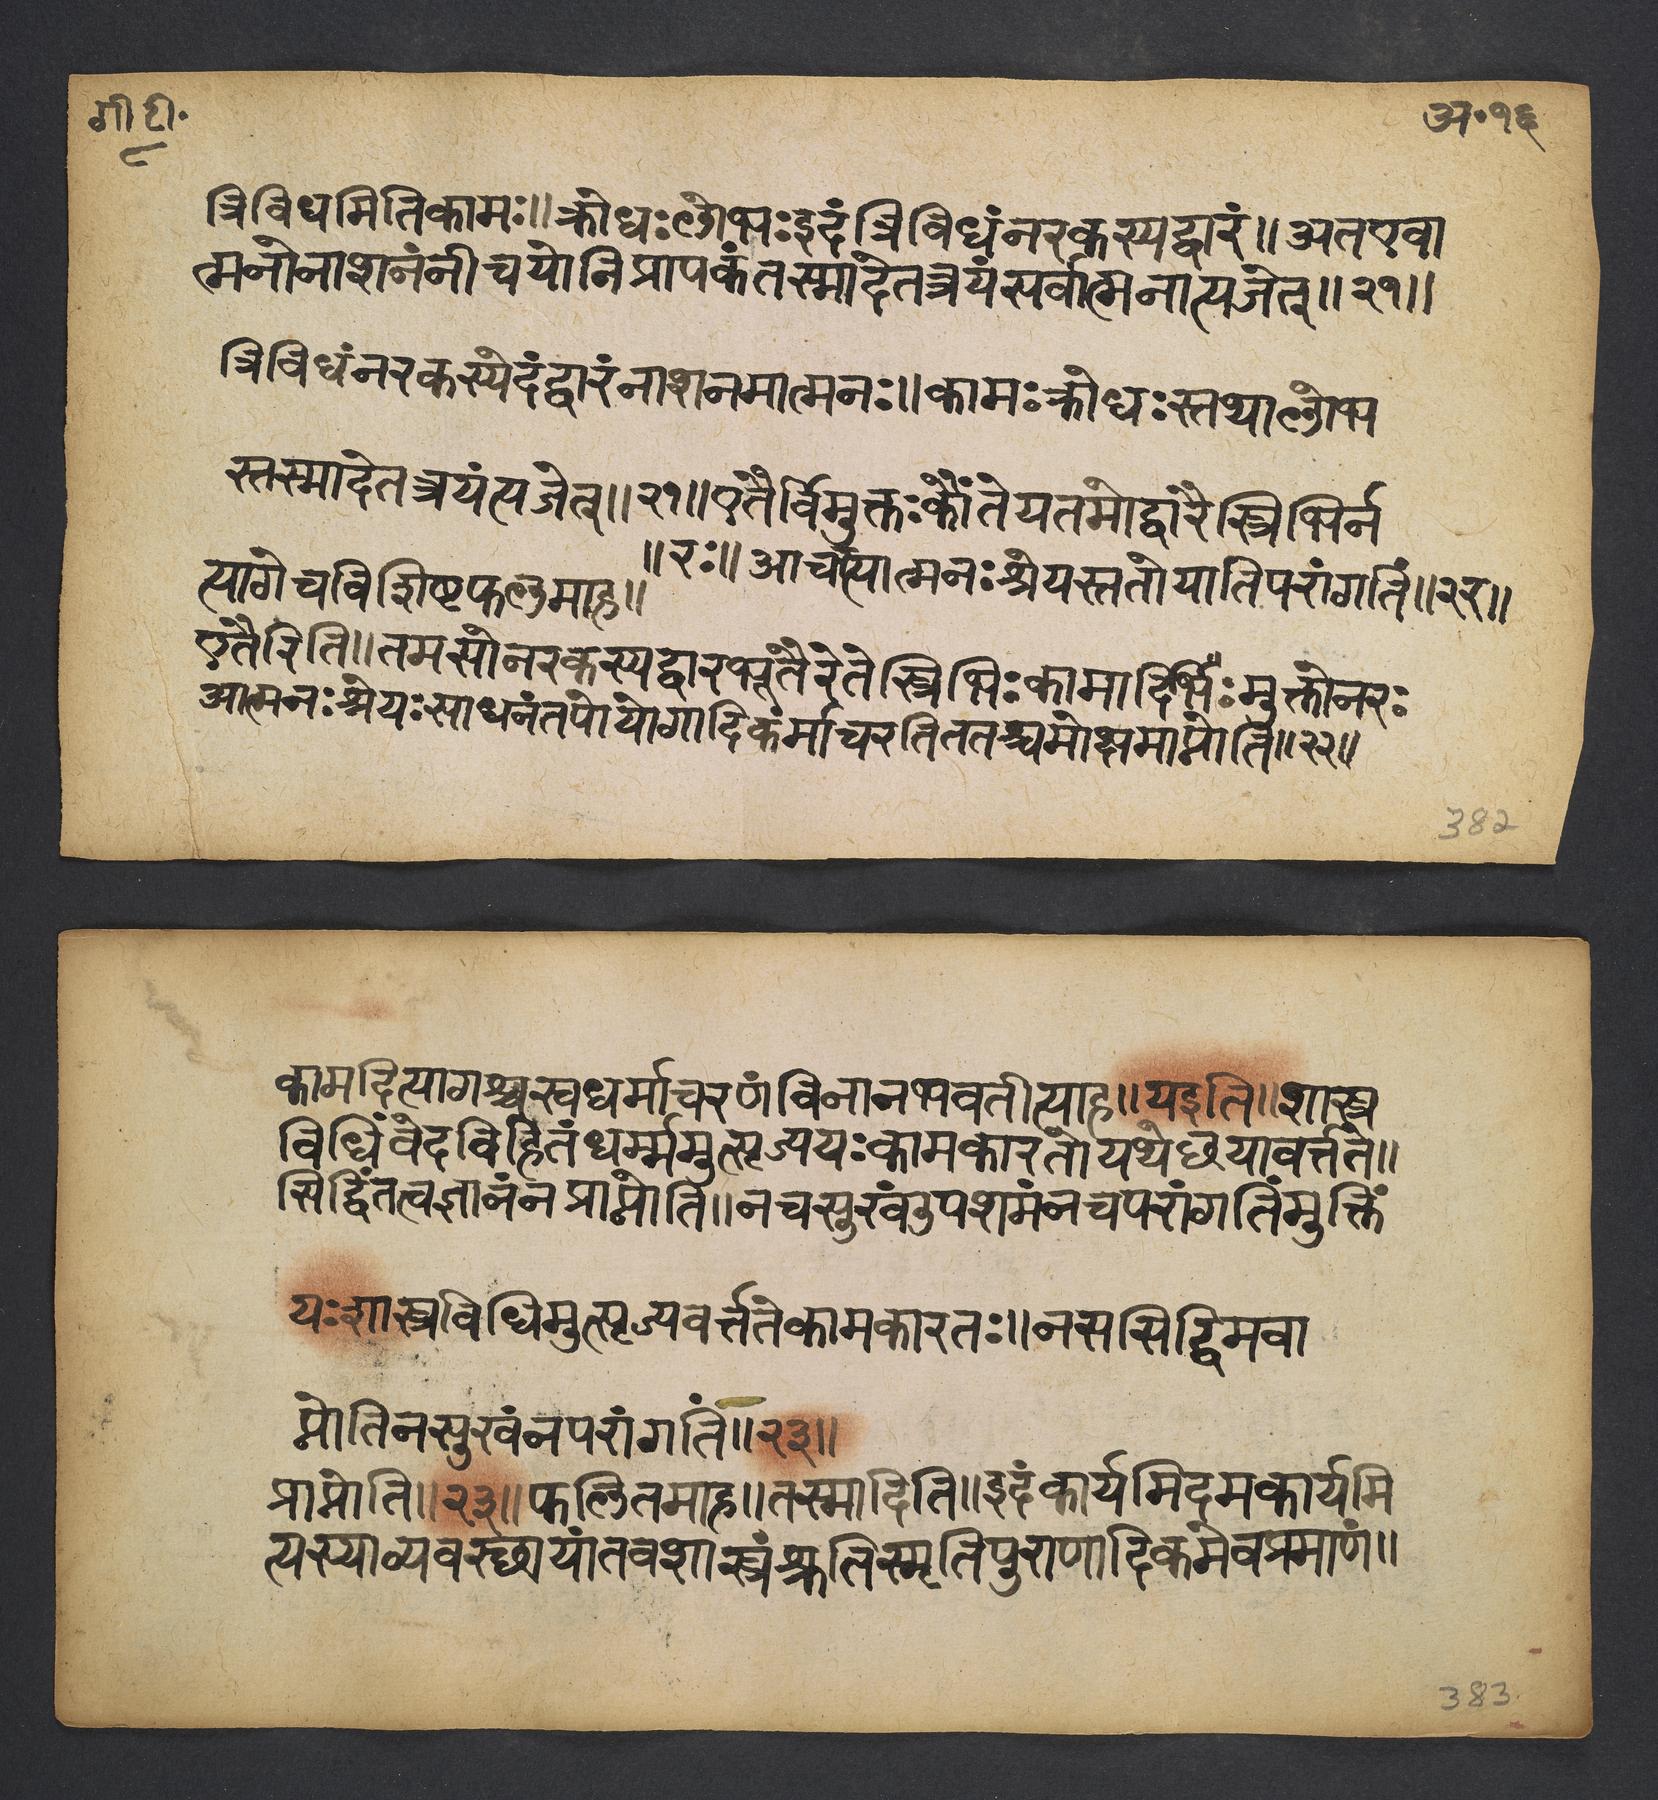 गी टी॰
८
अ॰१६
त्रिविधमितिकामः॥क्रोधःलोभःइदंत्रिविधंनरकस्यद्वारं॥अतएवा
त्मनोनाशनंनीचयोनिप्रापकंतस्मादेतत्रयंसर्वात्मनात्यजेत्॥२१॥
त्रिविधंनरकस्येदंद्वारंनाशनमात्मनः॥कामःक्रोधःस्तथालोभ
स्तस्मादेतत्रयंत्यजेत्॥२१॥एतैर्विमुक्तःकौंतेयतमोद्वारैस्त्रिभिर्न
॥रः॥आचरत्यात्मनःश्रेयस्ततोयातिपरांगतिं॥२२॥
त्यागेचविशिष्टफलमाह॥
एतैरिति॥तमसोनरकस्यद्वारभूतैरेतेस्त्रिभिःकामादिर्भिःमुक्तोनरः
आत्मनःश्रेयःसाधनंतपोयोगादिकंर्माचरतिततश्चमोक्षमाप्नोति॥२२॥
382
कामदित्यागश्चस्वधर्माचरणंविनानभवतीत्याह॥यइति॥शास्त्र
विधिंवेदविहितंधर्म्ममुत्सृज्ययःकामकारतोयथेछयावर्त्तते॥
सिद्धिंतत्वज्ञानंनप्राप्नोति॥नचसुखंउपशमंनचपरांगतिंमुक्तिं
यःशास्त्रविधिमुत्सृज्यवर्त्ततेकामकारतः॥नससिद्धिमवा
प्नोतिनसुखंनपरांगतिं॥२३॥
प्राप्नोति॥२३॥फलितमाह॥तस्मादिति॥इदंकार्यमिदमकार्यमि
त्यस्याव्यवस्छायांतवशास्त्रंश्रुतिस्मृतिपुराणादिकमेवप्रमाणं॥
383